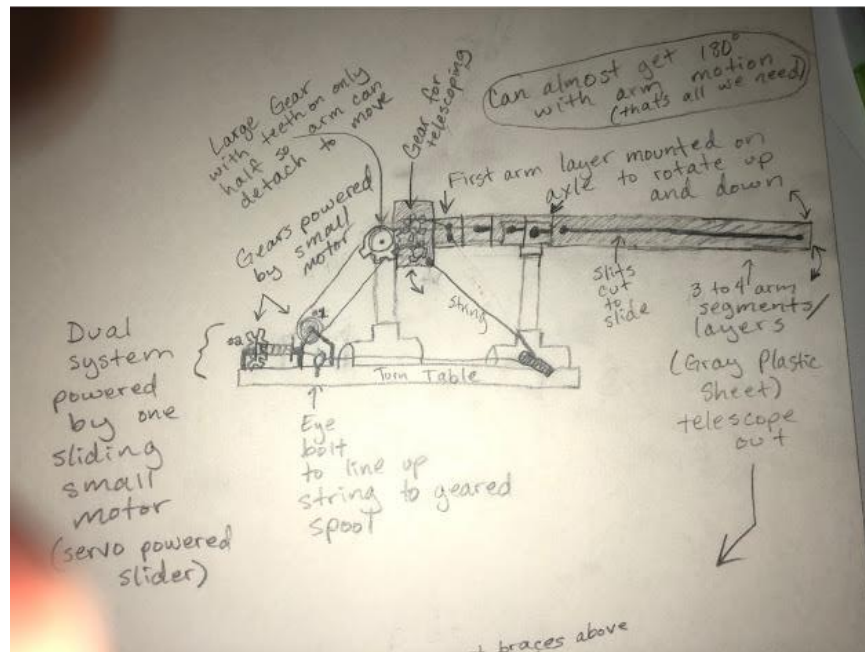 Can almost get 180°
with arm motion
(that's all we need)
Large Gear
with teeth on only
half so arm can
detach to move
Gear for
telescoping
First arm layer mounted on
axle to rotate up
and down
Gears powered
by small
motor
#1
#2
String
Slits
cut
to
slide
3 to 4 arm
segments/
layers
(Gray Plastic
Sheet)
telescope
out
Dual
system
powered
by one
sliding
small
motor
(servo powered
slider)
Turn Table
Eye
bolt
to line up
string to geared
spool
braces above